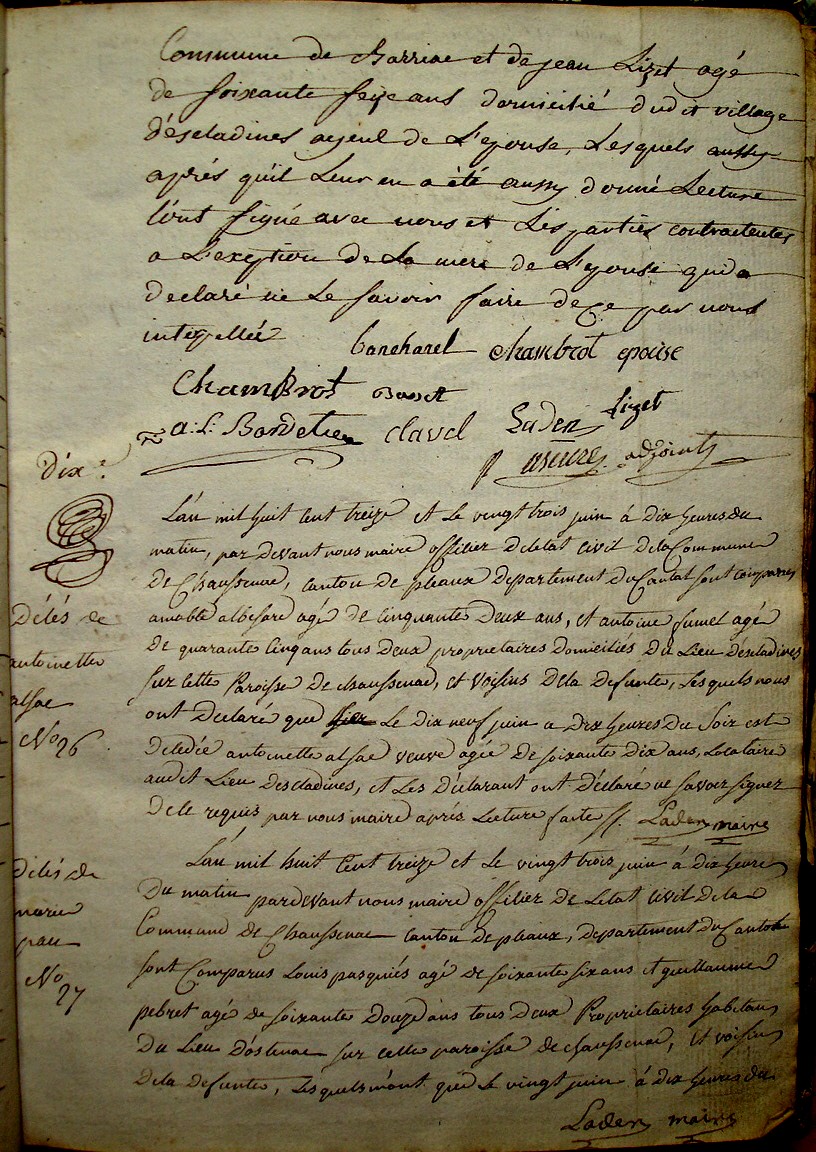 Commune de Barriac et de jean Lizet agé
de soixante seize ans domicilié dudit village
déscladines ayeul de L'epouse, Lesquels aussy
aprés qu'il Leur en a été aussy donné Lecture
l'ont signé avec nous et Les parties contractentes
a L'exeption de La mere de L'epouse qui a
declaré ne Le savoir faire de ce par nous
interpellée
Bancharel chambrot epouse
Chambrot
Lizet
a. L. Bardetien clavel Laden
adjoint
Dix.
L'an mil huit Cent treize et Le vingt trois juin à dix heures du
matin, par devant nous maire officier de letat Civil dela Commune
de Chaussenac, Canton de pleaux departement du Cantal sont comparus
amable albisare agé de Cinquante Deux ans, et antoine fumel agé
de quarante Cinq ans tous Deux proprietaires Domiciliés du Lieu déscladines
sur cette Paroisse de chaussenac, et Voisins dela defunte, Lesquels nous
ont Declaré que Le dix neuf juin a dix heures du Soir est
décedée antoinette alsac veuve agée de soixante dix ans, Locataire
audit Lieu Descladines, et Les Déclarant ont déclaré ne savoir signer
de Ce requis par nous maire aprés Lecture faite. Laden maire
Décés de
antoinette
alsac
No 26
L'an mil huit Cent treize et Le vingt trois juin à dix heures
Du matin pardevant nous maire officier de Letat Civil dela
Commune de Chaussenac Canton de pleaux, departement du Cantal
sont Comparus Louis pasquiés agé de soixante six ans et guillaume
pebret agé de soixante Douze ans tous deux Proprietaires habitans
du Lieu d'ostenac sur cette paroisse de chaussenac, et voisins
dela defunte, Lesquels m'ont que Le vingt juin à dix heures du
Décés de
marie
pau
No 27
Laden maire